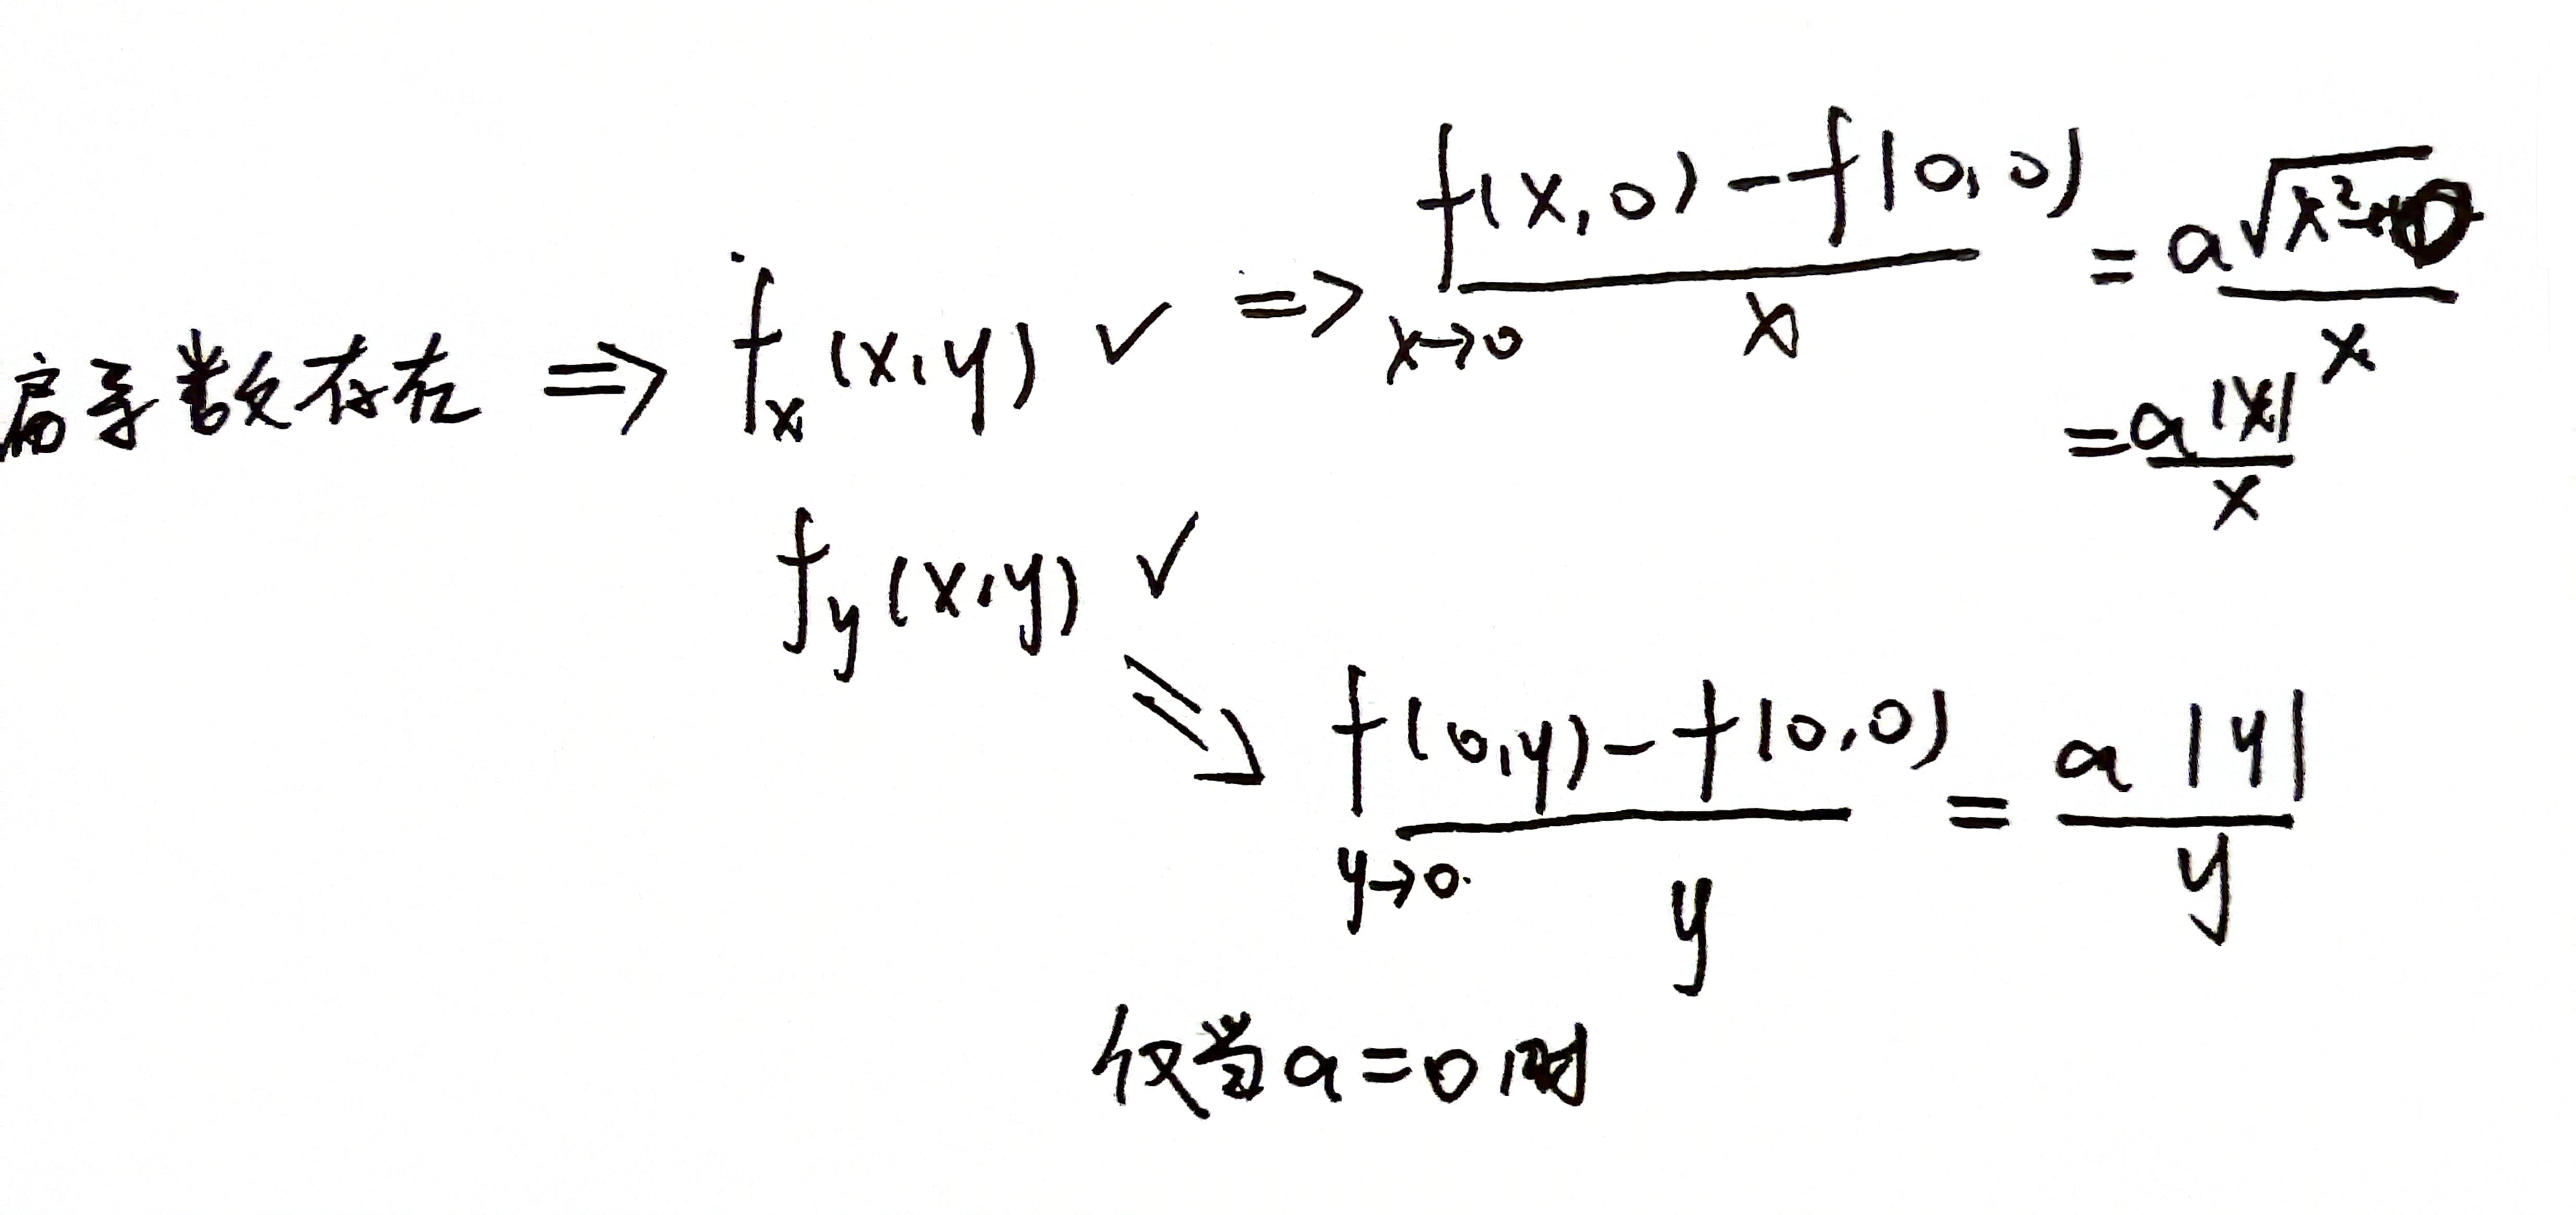 偏导数存在 => f_x(x,y) ✓ => (f(x,0)-f(0,0))/x x→0 = a√(x²+0)/x
= a|x|/x
f_y(x,y) ✓
=> (f(0,y)-f(0,0))/y y→0. = a|y|/y
仅当a=0时